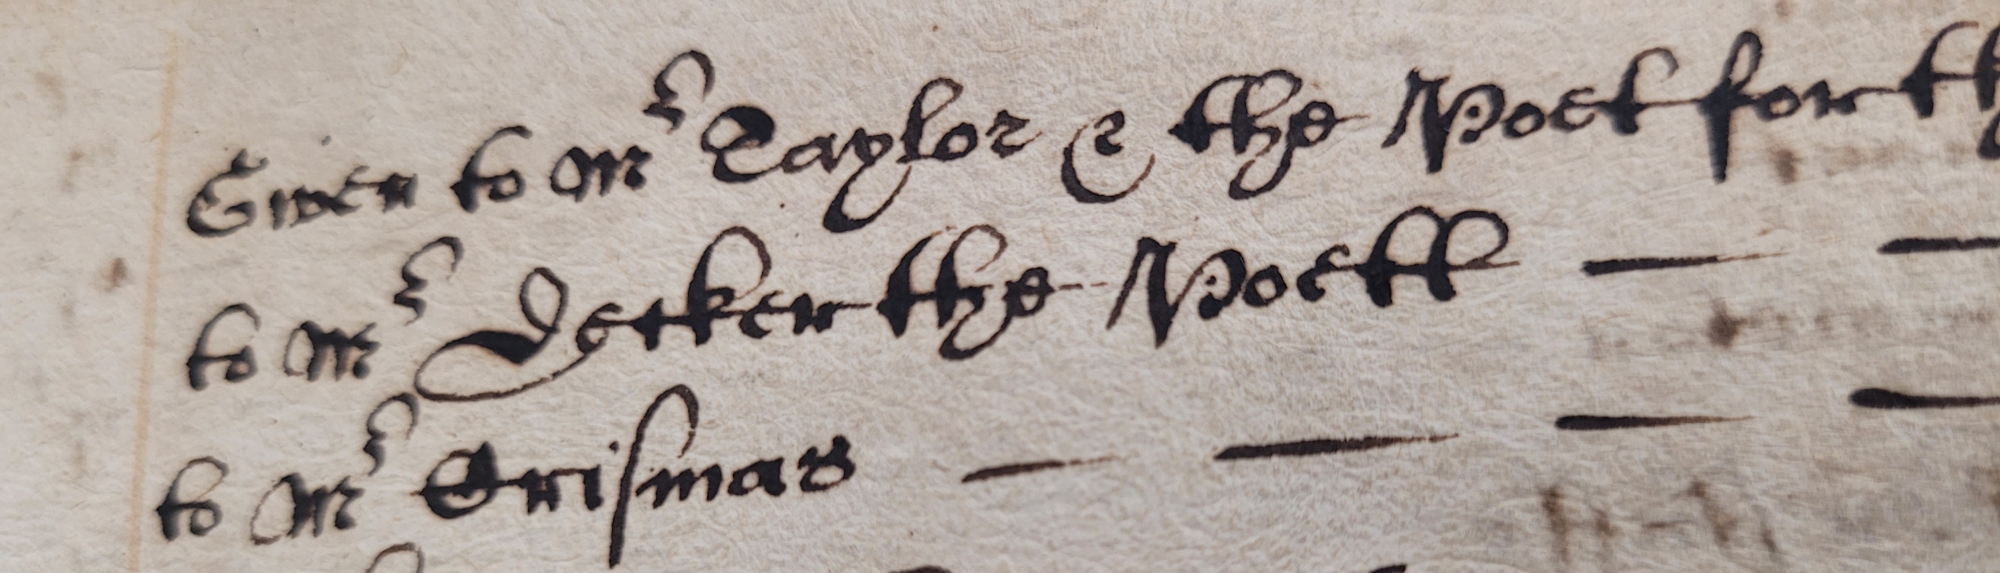 Given to Mr Taylor e the Poet for
to Mr Decker the Poett
to Mr Crismas